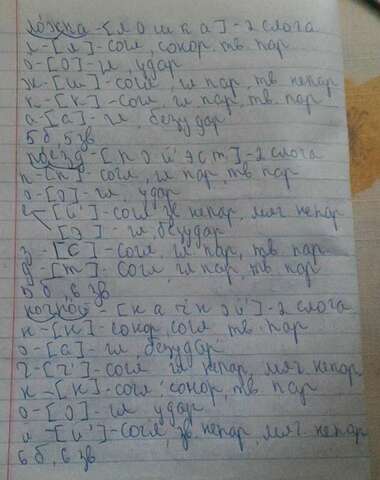 ложка-[л о ш к а]-2 слога
л-[л]-согл, сонор, тв. пар
о-[о]-гл, удар
ж-[ш]-согл, гл пар, тв. непар
к-[к]-согл, гл пар, тв. пар
а-[а]-гл, безудар
5 б, 5 зв
поезд-[п о й' э с т]-2 слога
п-[п]-согл, гл пар, тв пар
о-[о]-гл, удар
е-[й']-согл зв непар, мяг непар
[э]-гл, безудар
з-[с]-согл, гл пар, тв. пар
д-[т]-согл, гл пар, тв пар
5 б, 6 зв
ночной-[н а ч' н о й']-2 слога
н-[н]-сонор, согл тв. пар
о-[а]-гл, безудар
ч-[ч']-согл гл непар, мяг. непар
н-[н]-согл, сонор, тв. пар
о-[о]-гл удар
й-[й']-согл, зв непар, мяг. непар
6 б, 6 зв